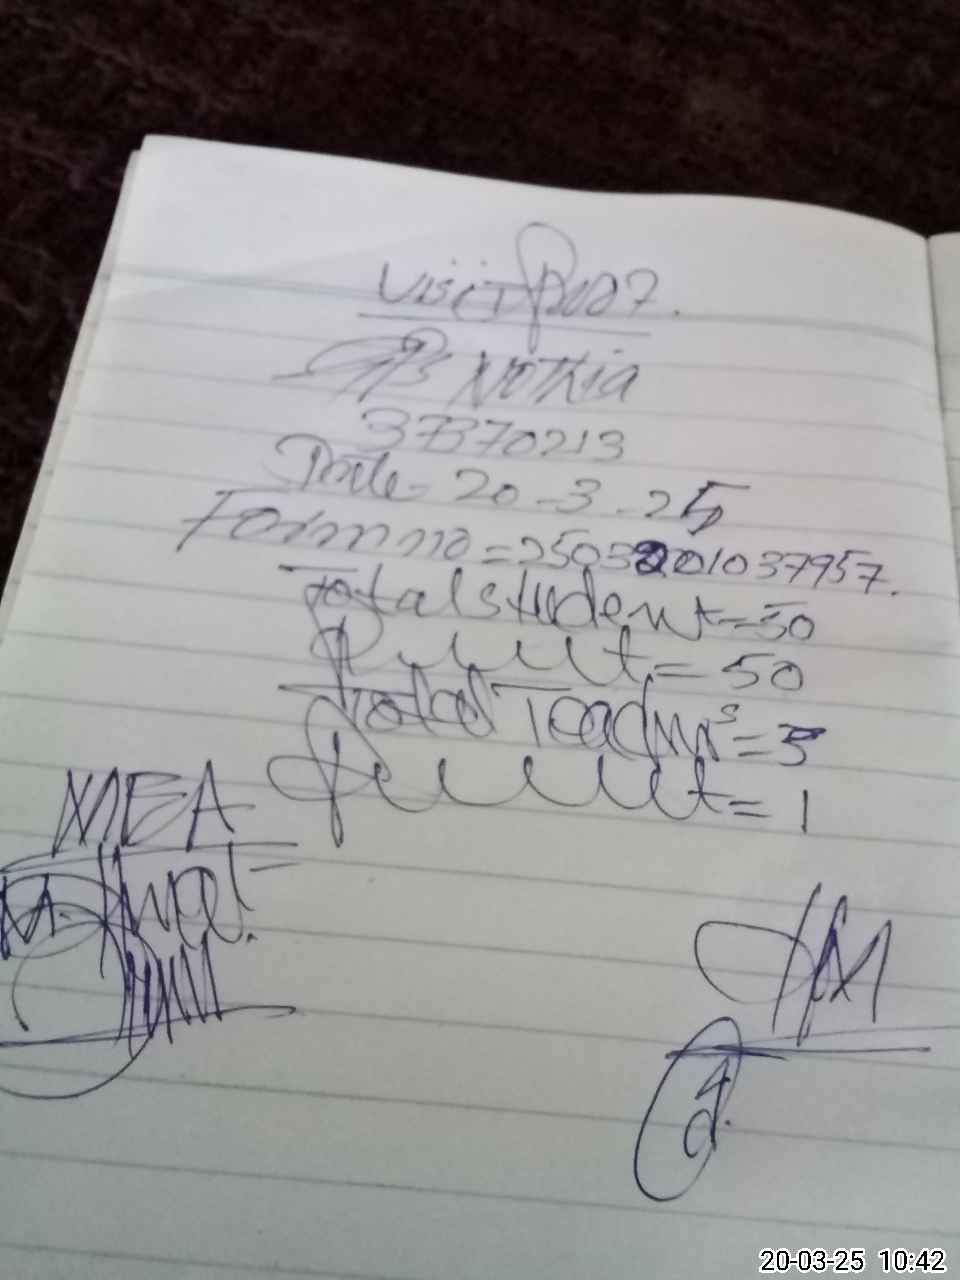 Visit Proof.
GPS Nothia
37370213
Date - 20-3-25
Form no = 25032001037957.
Total student = 50
Present = 50
Total Teachers = 5
Present = 1
MEA
HM
20-03-25 10:42